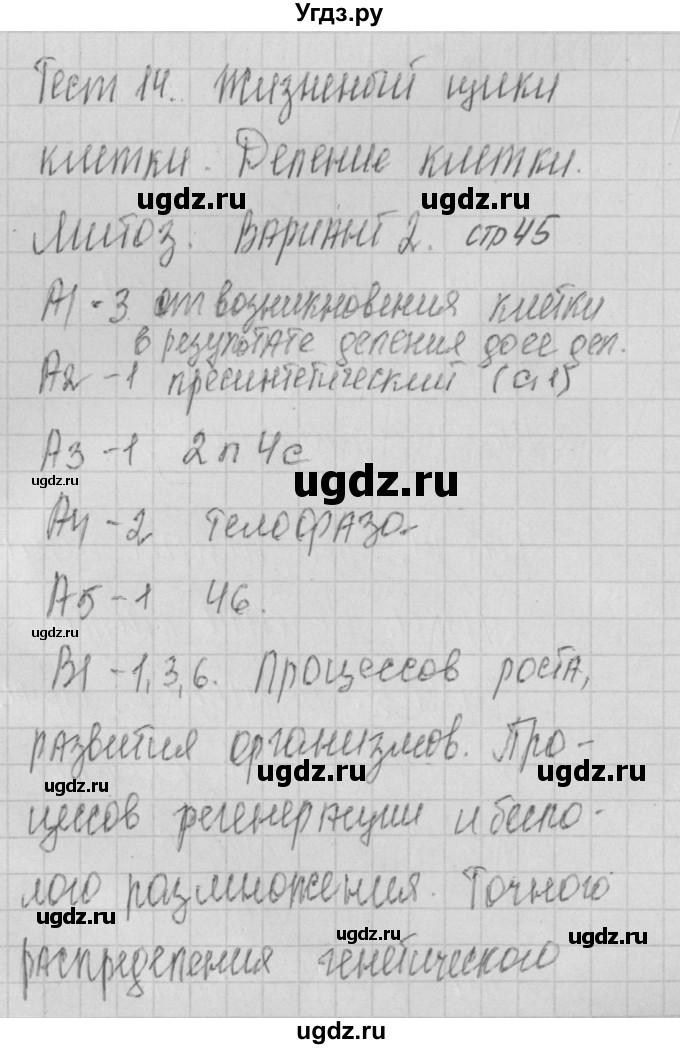 Угдз.ру
Тест 14. Жизненый цикл
клетки. Деление клетки.
Митоз. Вариант 2. стр 45
А1 - 3 от возникновения клетки
в результате деления до ее дел.
А2 - 1 пресинтетический (G1)
А3 - 1 2n 4c
ugdz.ru
ugdz.ru
А4 - 2 телофаза
ugdz.ru
А5 - 1 46.
ugdz.ru
В1 - 1, 3, 6. Процессов роста,
развития организмов. Про-
ugdz.ru
ugdz.ru
цессов регенерации и беспо-
лого размножения. Точного
ugdz.ru
ugdz.ru
распределения генетического
ugdz.ru
ugdz.ru
ugdz.ru
ugdz.ru
ugdz.ru